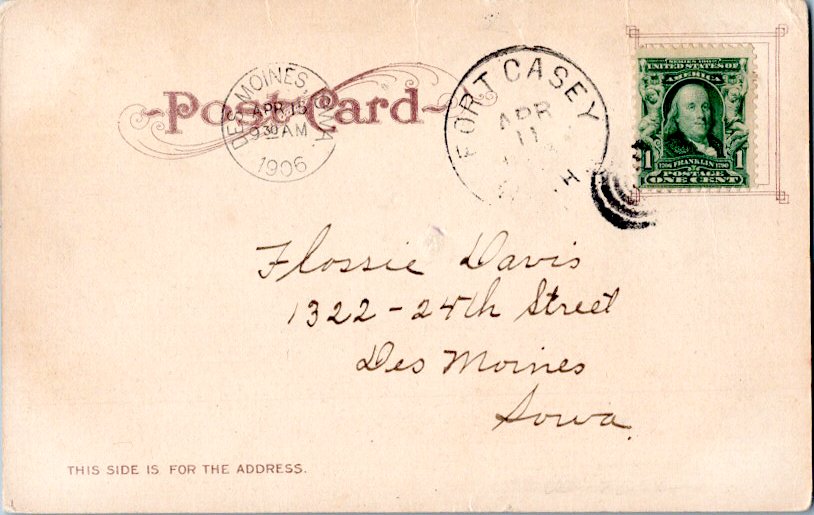 Post Card
DES MOINES, IOWA.
APR 15
9 30 AM
1906
FORT CASEY
APR
11
SERIES 1902
UNITED STATES OF
AMERICA
1706 FRANKLIN 1790
1 1
POSTAGE
ONE CENT
Flossie Davis
1322-24th Street
Des Moines
Iowa.
THIS SIDE IS FOR THE ADDRESS.